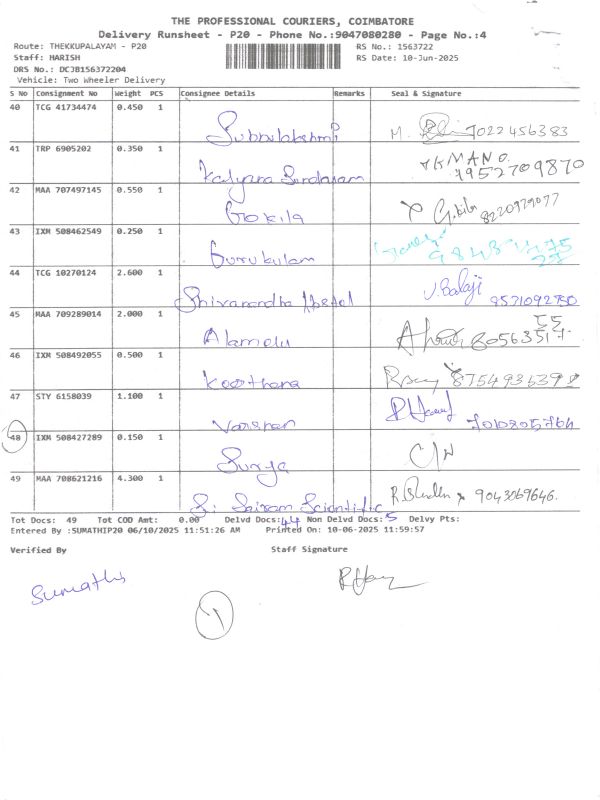 THE PROFESSIONAL COURIERS, COIMBATORE
Delivery Runsheet - P20 - Phone No.:9047080280 - Page No.:4
Route: THEKKUPALAYAM - P20 RS No.: 1563722
Staff: HARISH RS Date: 10-Jun-2025
DRS No.: DCJB156372204
Vehicle: Two Wheeler Delivery
S No Consignment No Weight PCS Consignee Details Remarks Seal & Signature
40 TCG 41734474 0.450 1
Subbulakshmi M. 7022456383
41 TRP 6905202 0.350 1
Kalyana Sundaram MANO. 9952709870
42 MAA 707497145 0.550 1
Gokila Gokila 8220979077
43 IXM 508462549 0.250 1
Gurukulam
44 TCG 10270124 2.600 1
Shivanandha Hostel V. Balaji 8571092780
45 MAA 709289014 2.000 1
Alamelu
46 IXM 508492055 0.500 1
47 STY 6158039 1.100 1
48 IXM 508427289 0.150 1
Surya C/N
49 MAA 708621216 4.300 1
Sri Sairam Scientific 9043069646.
Tot Docs: 49 Tot COD Amt: 0.00 Delvd Docs: 44 Non Delvd Docs: 5 Delvy Pts:
Entered By :SUMATHIP20 06/10/2025 11:51:26 AM Printed On: 10-06-2025 11:59:57
Verified By Staff Signature
Sumathi
1